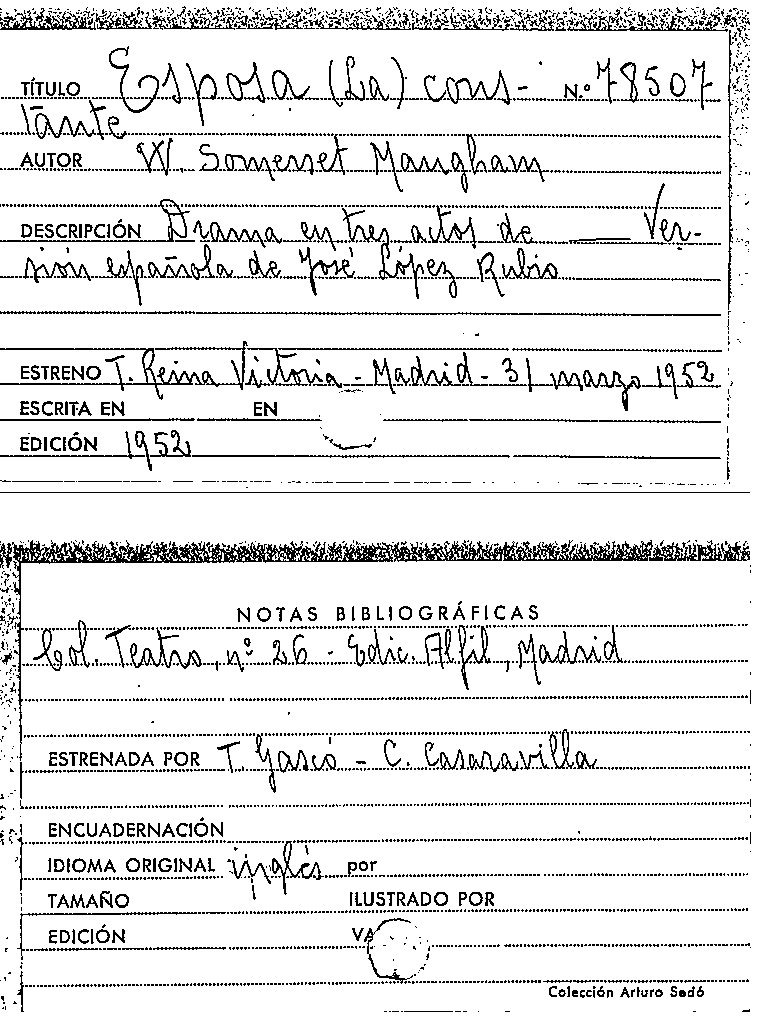 TÍTULO Esposa (La) cons- N.º 78507
tante
AUTOR W. Somerset Maugham
DESCRIPCIÓN Drama en tres actos de ___ Ver-
sión española de José López Rubio
ESTRENO T. Reina Victoria - Madrid - 31 marzo 1952
ESCRITA EN EN
EDICIÓN 1952
NOTAS BIBLIOGRÁFICAS
Col. Teatro, nº 26 - Edic. Alfil, Madrid
ESTRENADA POR T. Gascó - C. Casaravilla
ENCUADERNACIÓN
IDIOMA ORIGINAL inglés por
TAMAÑO ILUSTRADO POR
EDICIÓN
Colección Arturo Sedó